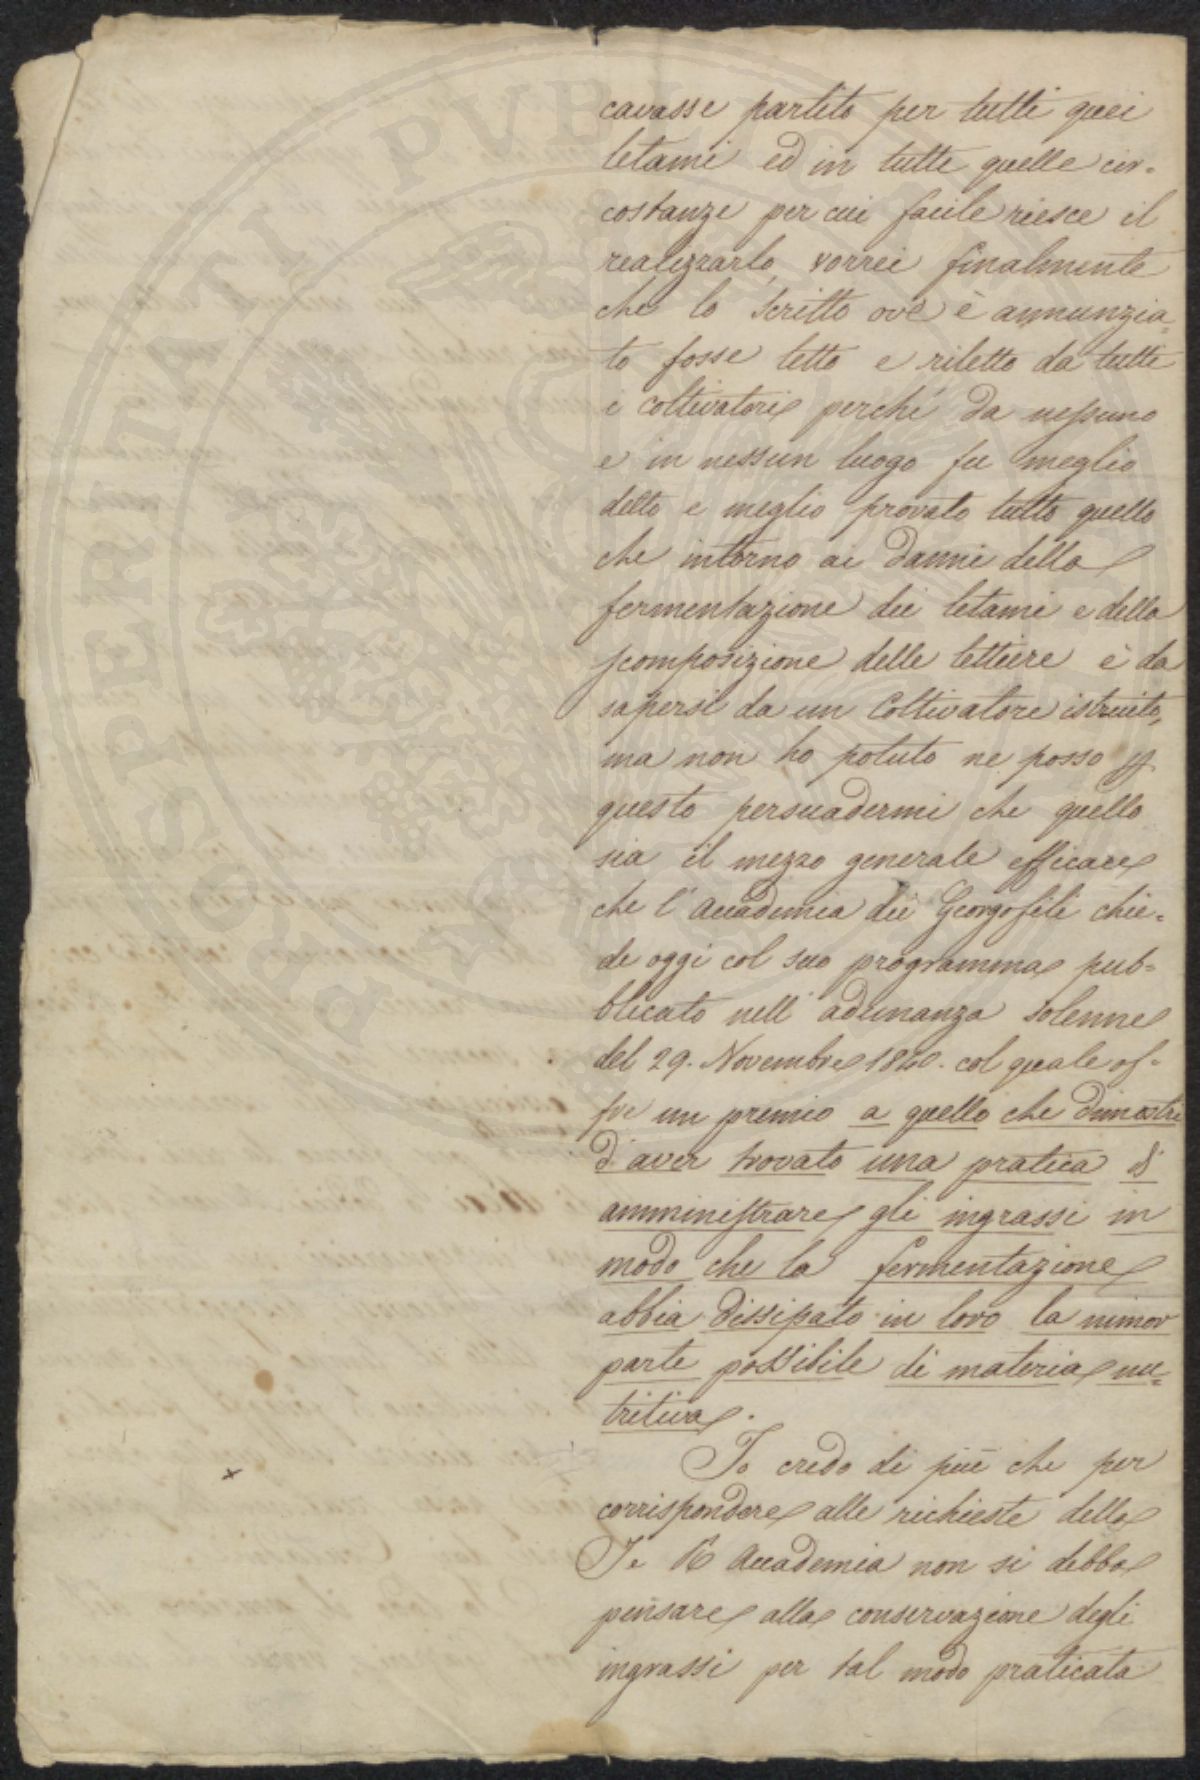 cavasse partito per tutti quei
letami ed in tutte quelle cir=
costanze per cui facile riesce il
realizzarlo, vorrei finalmente
che lo scritto ove è annunzia=
to fosse letto e riletto da tutti
i coltivatori perché da nessuno
e in nessun luogo fu meglio
detto e meglio provato tutto quello
che intorno ai danni della
fermentazione dei letami e della
scomposizione delle lettiere è da
sapersi da un Coltivatore istruito,
ma non ho potuto ne posso p
questo persuadermi che quello
sia il mezzo generale efficace
che l'Accademia dei Georgofili chie=
de oggi col suo programma pub=
blicato nell'adunanza solenne
del 29. Novembre col quale of=
fre un premio a quello che dimostri
d'aver trovato una pratica d'
amministrare gli ingrassi in
modo che la fermentazione
abbia dissipato in loro la minor
parte possibile di materia nu=
tritiva.
Io credo di più che per
corrispondere alle richieste della
I e R Accademia non si debba
pensare alla conservazione degli
ingrassi per tal modo praticata
PROSPERITATI PVBLICAE